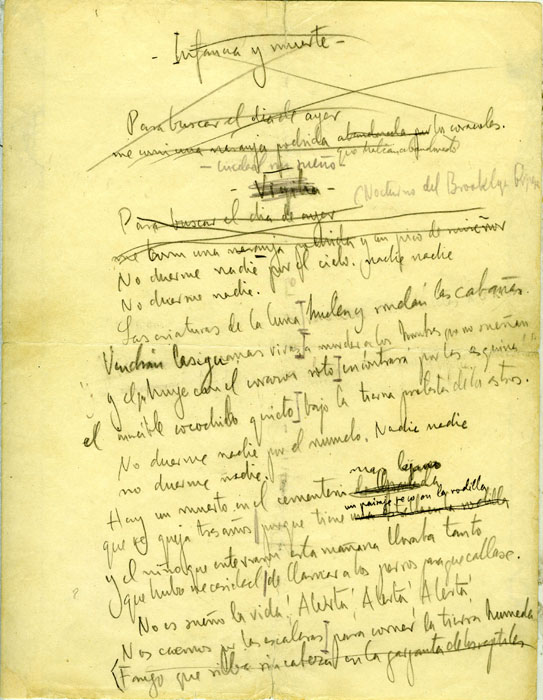 - Infancia y muerte -
Para buscar el dia de ayer
me comi una naranja podrida abandonada por los caracoles.
- ciudad sin sueño - que habian abandonado
- Vigilia -
(Nocturno del Brooklyn Bridge
Para buscar el dia de ayer
me comi una naranja podrida y un pico de
No duerme nadie por el cielo. Nadie nadie
No duerme nadie.
Las criaturas de la luna huelen y rondan las cabañas.
Vendrán las iguanas vivas a morder a los hombres que no sueñan
y el que huye con el corazon roto encontrará por las esquinas
el increible cocodrilo quieto bajo la tierna protesta de los astros.
No duerme nadie por el mundo. Nadie nadie
no duerme nadie.
Hay un muerto en el cementerio mas lejano
que se queja tres años porque tiene un paisaje seco en la rodilla
y el niño que enterraron esta mañana lloraba tanto
que hubo necesidad de llamar a los perros para que callase.
No es sueño la vida! Alerta! Alerta! Alerta!
Nos caemos por las escaleras para comer la tierra humeda
(Fango que silba sin cabeza en la garganta de los reptiles